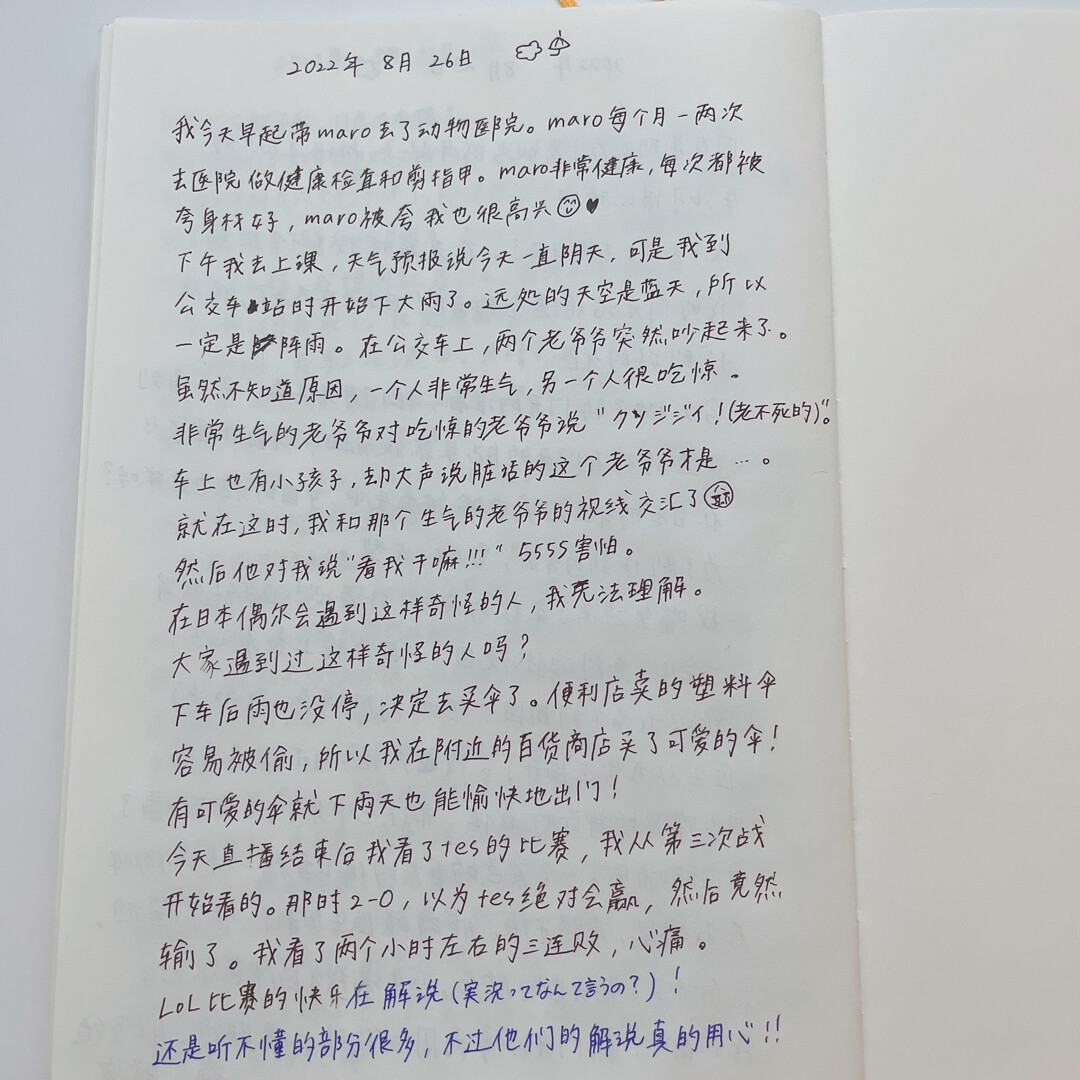 2022年 8月 26日
我今天早起带maro去了动物医院。maro每个月一两次
去医院做健康检查和剪指甲。maro非常健康，每次都被
夸身材好，maro被夸我也很高兴
下午我去上课，天气预报说今天一直阴天，可是我到
公交车站时开始下大雨了。远处的天空是蓝天，所以
一定是阵雨。在公交车上，两个老爷爷突然吵起来了。
虽然不知道原因，一个人非常生气，另一个人很吃惊。
非常生气的老爷爷对吃惊的老爷爷说“クソジジイ！(老不死的)”。
车上也有小孩子，却大声说脏话的这个老爷爷才是…。
就在这时，我和那个生气的老爷爷的视线交汇了
然后他对我说“看我干嘛!!!” 5555害怕。
在日本偶尔会遇到这样奇怪的人，我无法理解。
大家遇到过这样奇怪的人吗？
下车后雨也没停，决定去买伞了。便利店卖的塑料伞
容易被偷，所以我在附近的百货商店买了可爱的伞！
有可爱的伞就下雨天也能愉快地出门！
今天直播结束后我看了tes的比赛，我从第三次战
开始看的。那时2-0，以为tes绝对会赢，然后竟然
输了。我看了两个小时左右的三连败，心痛。
LoL比赛的快乐在解说(実況ってなんて言うの？)！
还是听不懂的部分很多，不过他们的解说真的用心!!